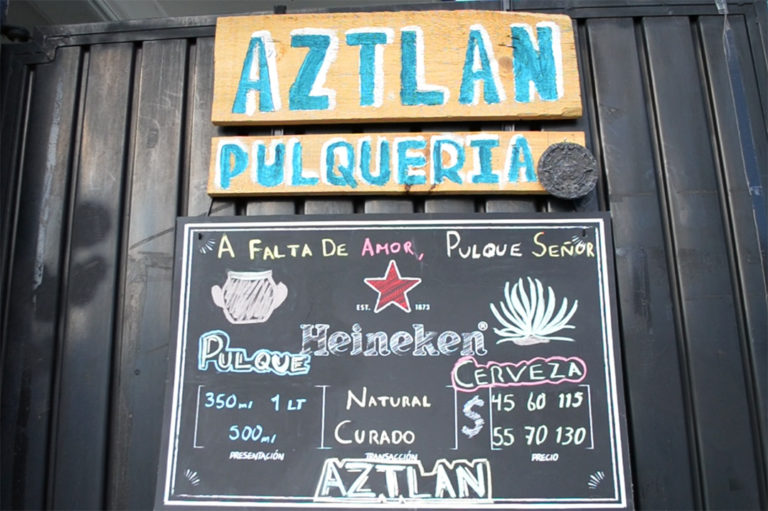 AZTLAN
PULQUERIA
A FALTA DE AMOR, PULQUE SEÑOR
EST. 1873
Heineken®
PULQUE
CERVEZA
350ml 1 LT NATURAL $ 45 60 115
500ml CURADO 55 70 130
PRESENTACIÓN TRANSACCIÓN PRECIO
AZTLAN